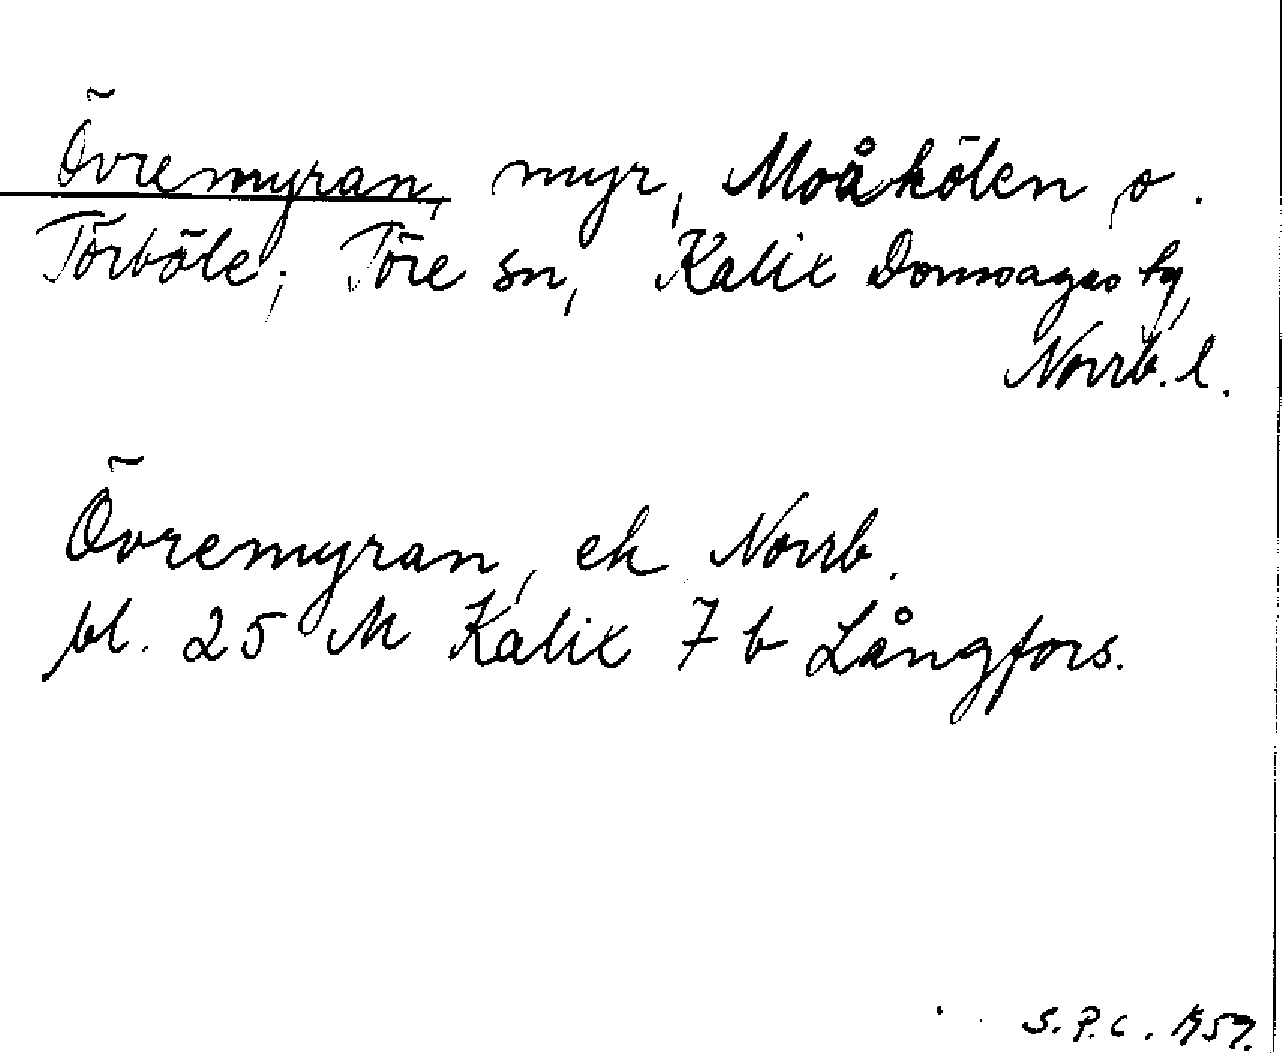 Övremyran, myr, Moåkölen o.
Törböle, Töre sn, Kalix Domsagas tg,
Norrb. l.
Övremyran, ek Norrb.
bl. 25 M Kalix 7 b Långfors.
S. P. C. 1959.